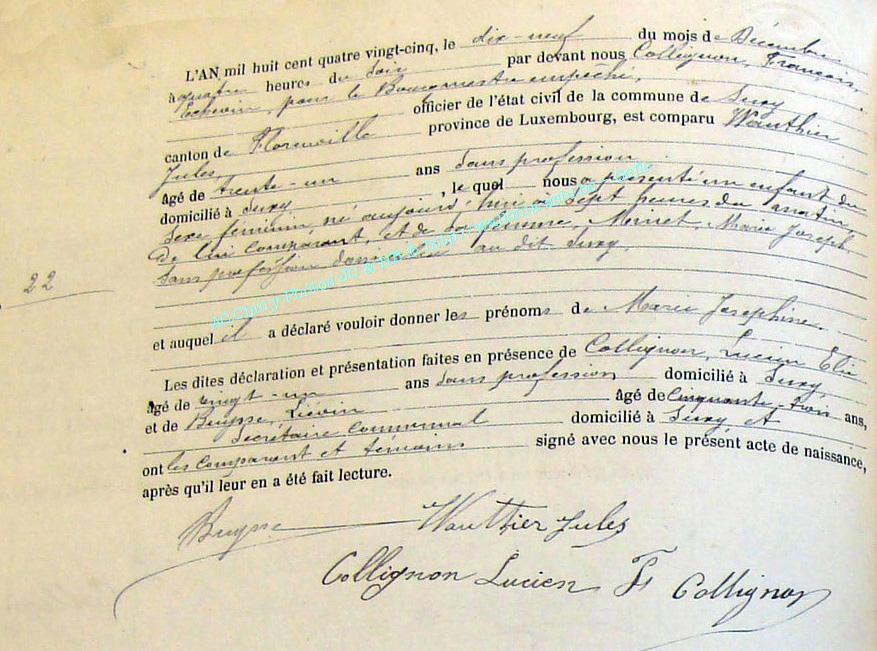 L'AN mil huit cent quatre vingt-cinq, le dix-neuf du mois de Décembre
à quatre heures du soir par devant nous Collignon, François,
Echevin, pour le Bourgmestre empêché,
officier de l'état civil de la commune de Suxy
canton de Florenville province de Luxembourg, est comparu Wauthier
Jules
âgé de trente-un ans sans profession
domicilié à Suxy, le quel nous a présenté un enfant du
sexe féminin, né aujourd'hui à sept heures du matin,
de lui comparant, et de son épouse, Marie Joseph
sans profession domiciliée au dit Suxy.
22
et auquel il a déclaré vouloir donner les prénoms de Marie Josephine.
Les dites déclaration et présentation faites en présence de Collignon, Lucien Elie
âgé de vingt-un ans sans profession domicilié à Suxy,
et de Buysse, Liévin âgé de cinquante-trois ans,
Secrétaire Communal domicilié à Suxy et
ont les comparant et témoins signé avec nous le présent acte de naissance,
après qu'il leur en a été fait lecture.
Buysse Wauthier Jules
Collignon Lucien Fs Collignon